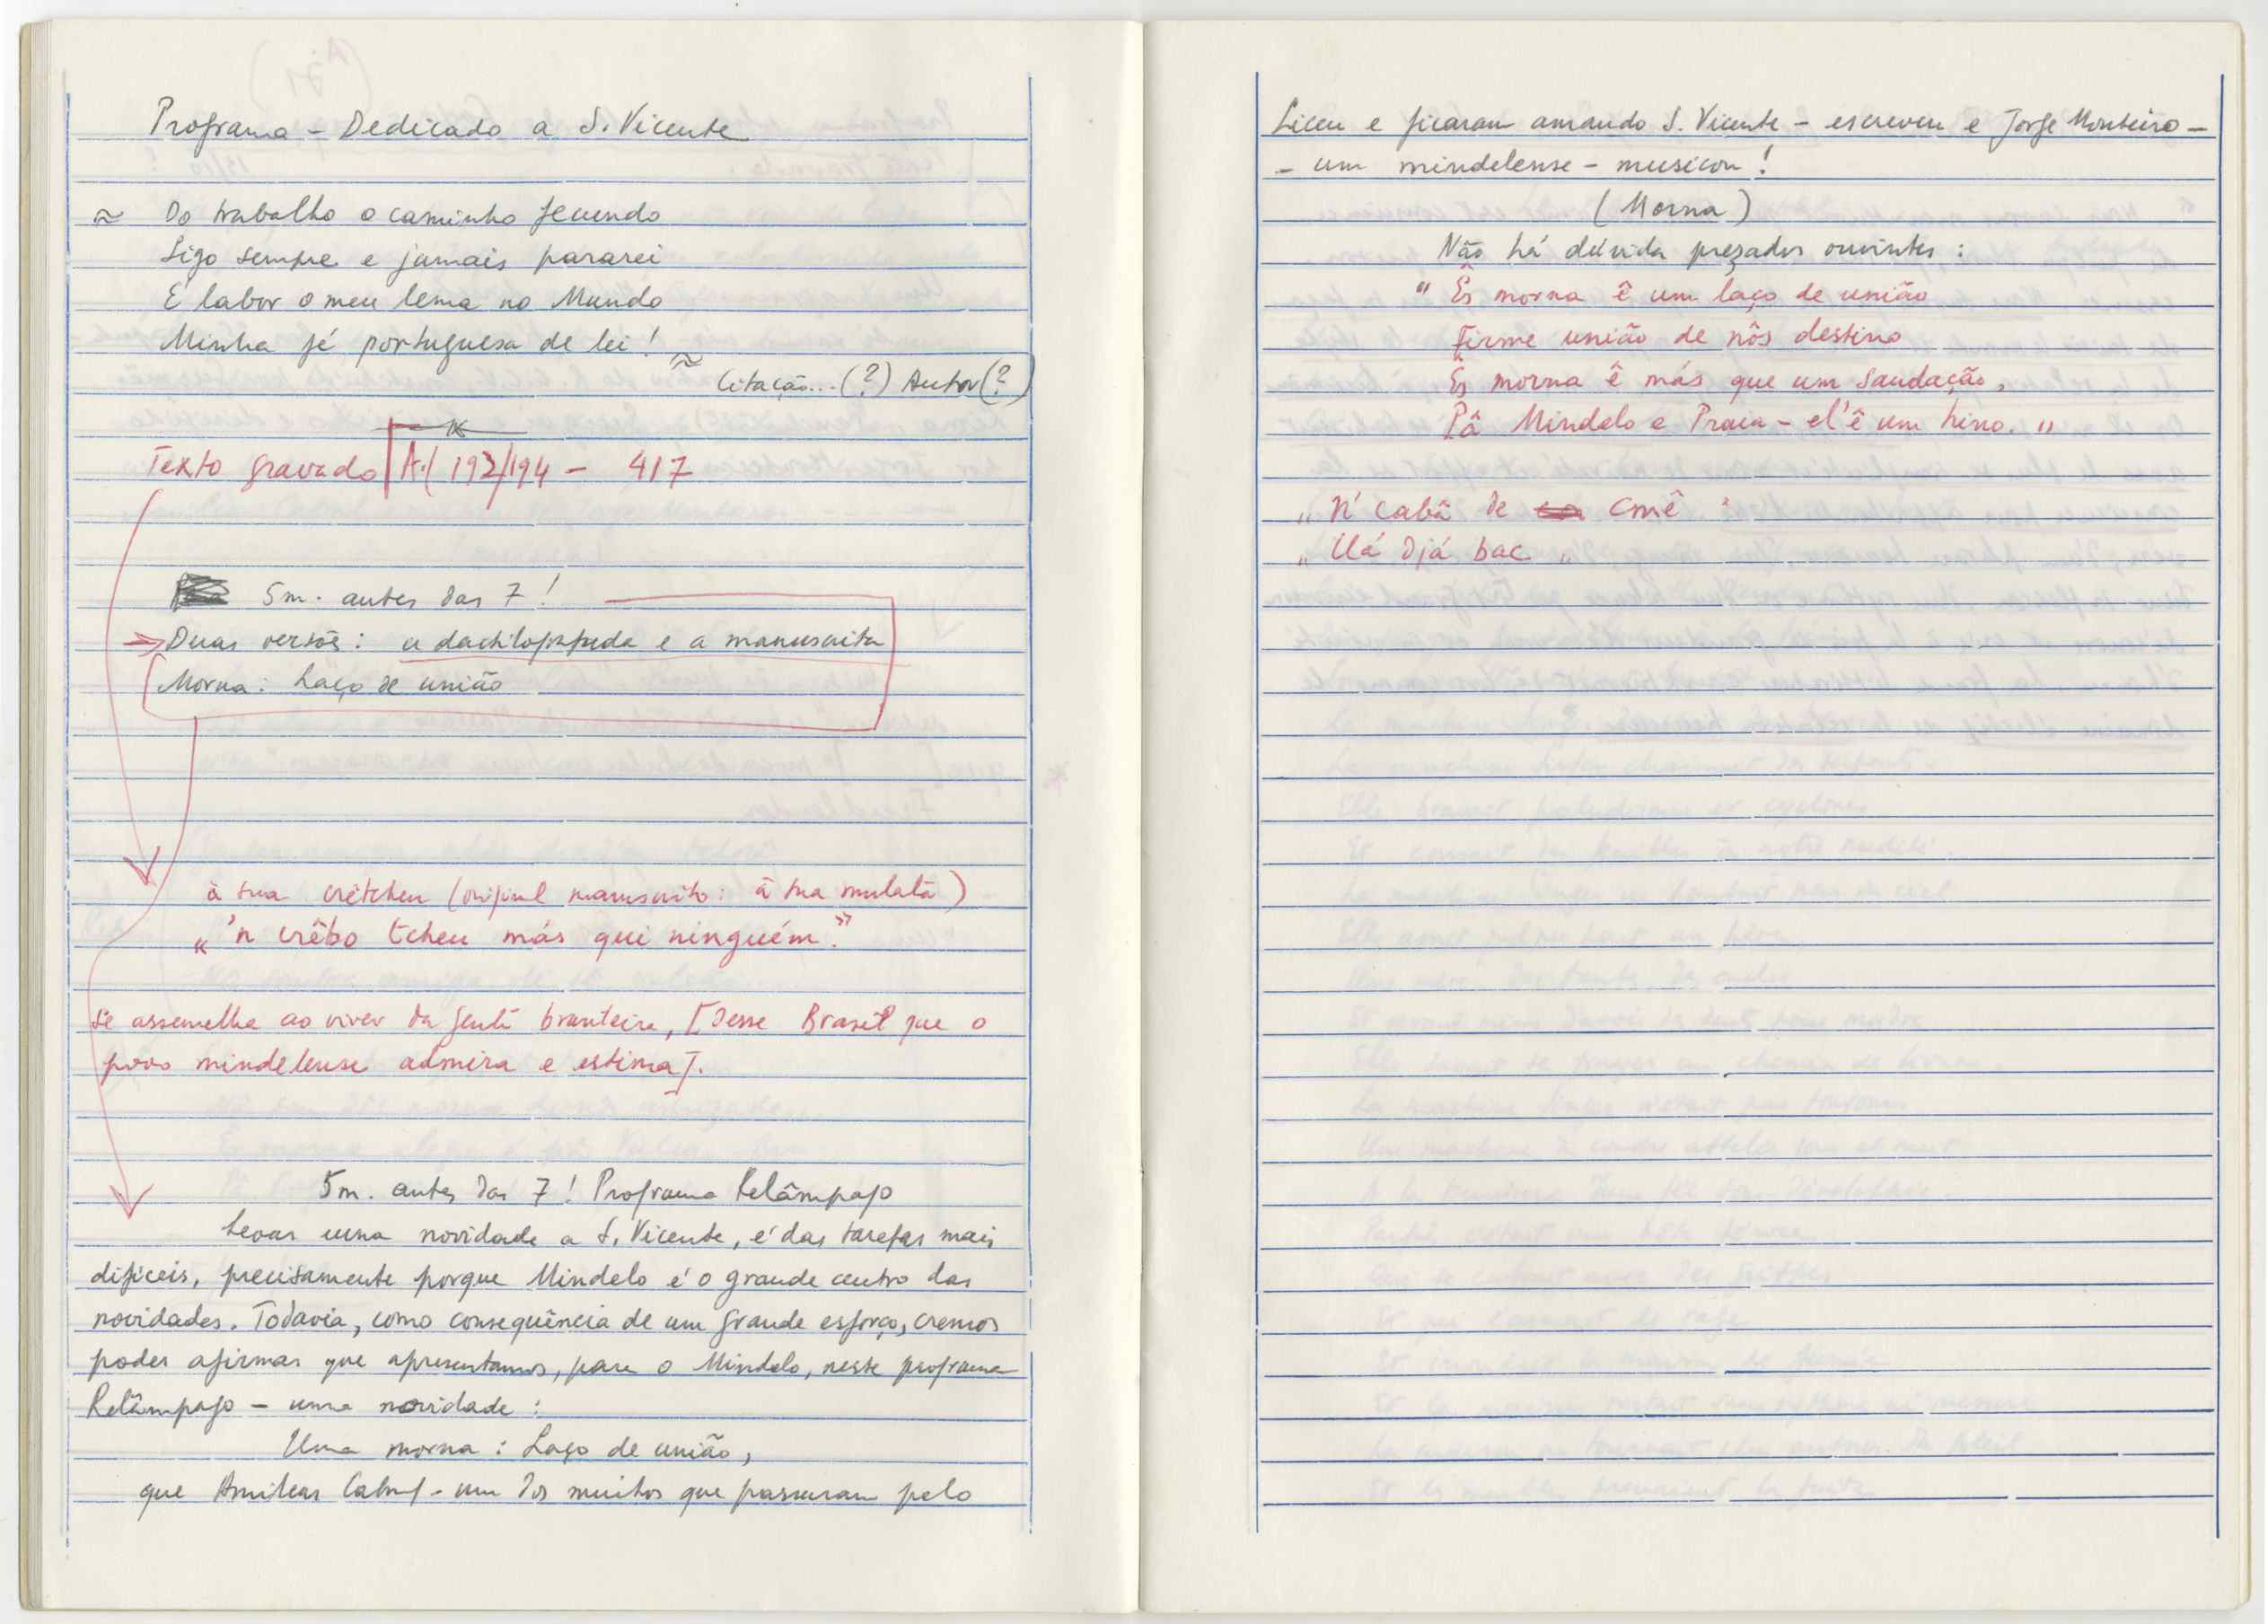 Programa - Dedicado a S. Vicente
≈ Do trabalho o caminho fecundo
Sigo sempre e jamais pararei
É labor o meu lema no Mundo
Minha fé portuguesa de lei! ≈
Citação...(?) Autor(?)
Texto gravado A.( 192/194 - 417
5m. antes das 7!
Duas versões: a dactilografada e a manuscrita
Morna: Laço de união
à tua crêtcheu (original manuscrito: à tua mulata)
« 'n crêbo tcheu más qui ninguém."
se assemelha ao viver da gente brasileira, [desse Brasil que o
povo mindelense admira e estima].
5m. antes das 7! Programa Relâmpago
Levar uma novidade a S. Vicente, é das tarefas mais
difíceis, precisamente porque Mindelo é o grande centro das
novidades. Todavia, como consequência de um grande esforço, cremos
poder afirmar que apresentamos, para o Mindelo, neste programa
Relâmpago - uma novidade:
Uma morna: Laço de união,
que Amílcar Cabral - um dos muitos que passaram pelo
Liceu e ficaram amando S. Vicente - escreveu e Jorge Monteiro -
- um mindelense - musicou!
(Morna)
Não há dúvida prezados ouvintes:
" Ês morna ê um laço de união
Firme união de nôs destino
Ês morna ê más que um saudação,
Pâ Mindelo e Praia - el'ê um hino. "
" N' cabâ de cmê "
" Uá djá bac "